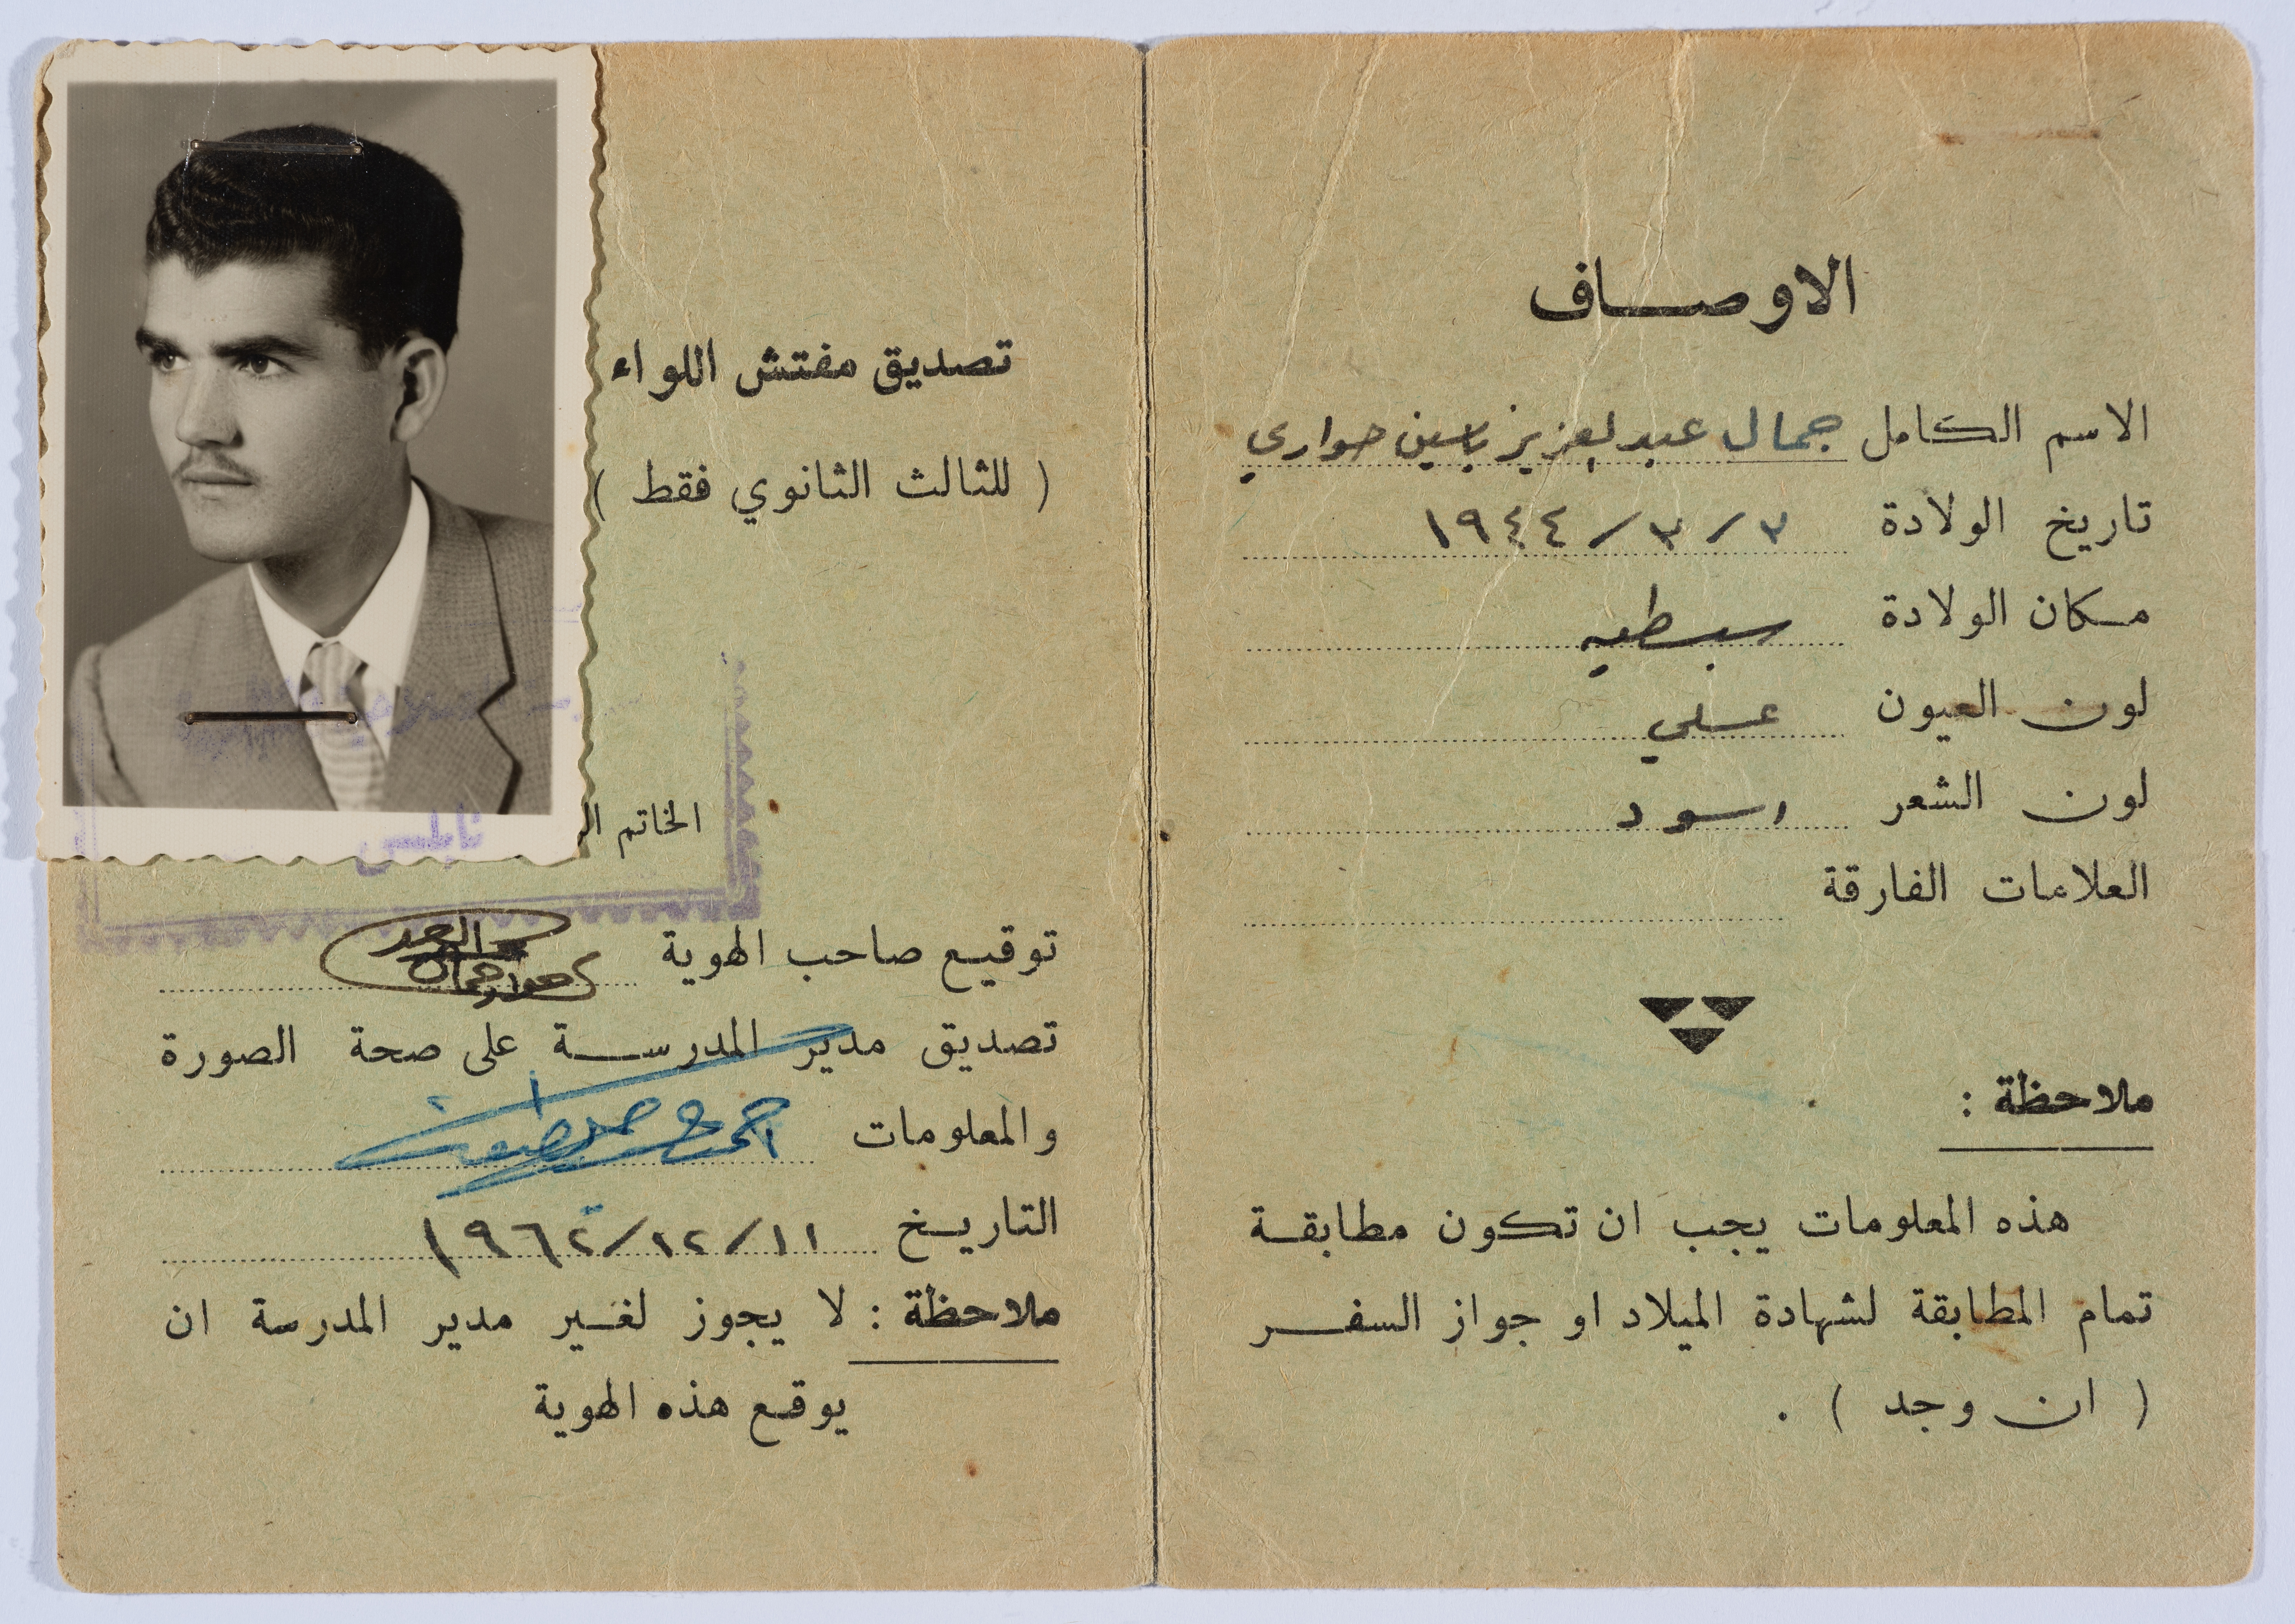 الاوصاف
الاسم الكامل جمال عبدالعزيز ياسين حواري
تاريخ الولادة ٣ / ٣ / ١٩٤٤
مكان الولادة سبسطيه
لون العيون عسلي
لون الشعر اسود
العلامات الفارقة
ملاحظة :
هذه المعلومات يجب ان تكون مطابقة
تمام المطابقة لشهادة الميلاد او جواز السفر
( ان وجد ) .
تصديق مفتش اللواء
( للثالث الثانوي فقط )
الخاتم
نابلس
توقيع صاحب الهوية
تصديق مدير المدرسة على صحة الصورة
والمعلومات
التاريخ ١١/١٢/١٩٦٢
ملاحظة : لا يجوز لغير مدير المدرسة ان
يوقع هذه الهوية